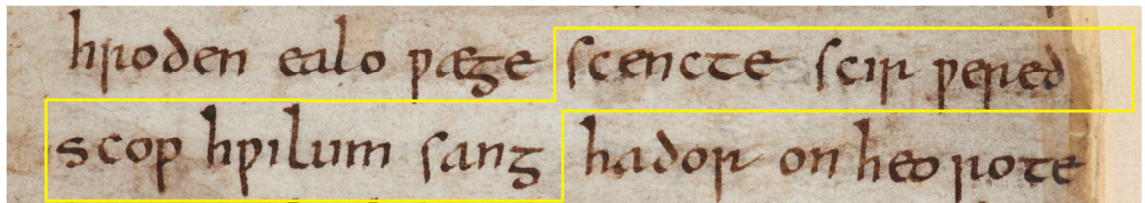 hroden ealo ƿæge scencte scir ƿered
scop hƿilum sang hador on heorote